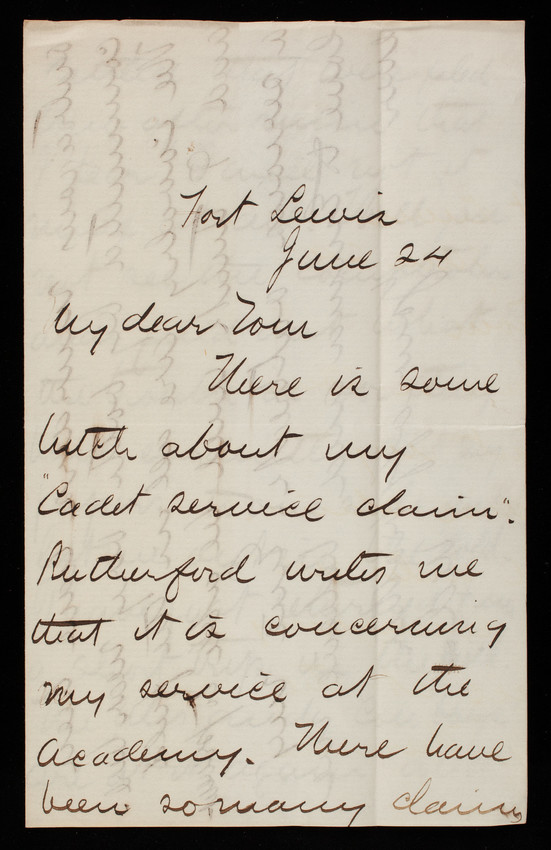 Fort Lewis
June 24
My dear Tom
There is some
hitch about my
"Cadet service claim".
Rutherford writes me
that it is concerning
my service at the
Academy. There have
been so many claims